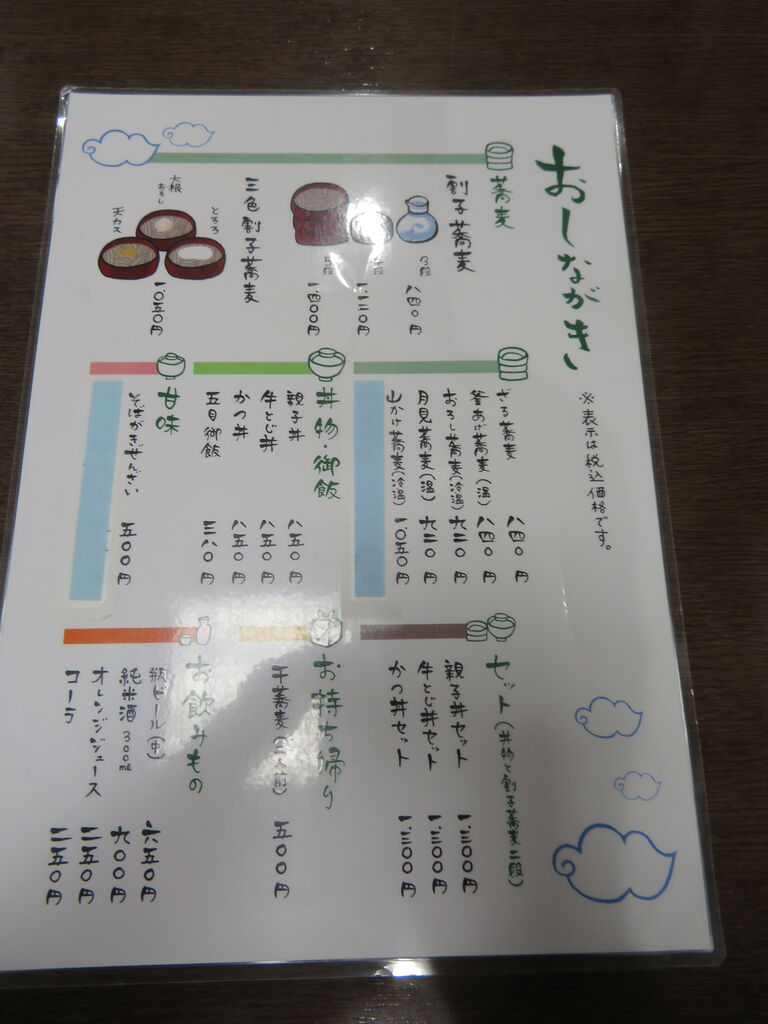 おしながき
※表示は税込価格です。
蕎麦
割子蕎麦
三段 八四〇円
一、一二〇円
五段 一、四〇〇円
三色割子蕎麦
とろろ
大根おろし
天カス
一、〇五〇円
ざる蕎麦 八四〇円
釜あげ蕎麦(温) 八四〇円
おろし蕎麦(冷温) 九二〇円
月見蕎麦(温) 九二〇円
山かけ蕎麦(冷温) 一、〇五〇円
丼物・御飯
親子丼 八五〇円
牛とじ丼 八五〇円
かつ丼 八五〇円
五目御飯 三八〇円
甘味
そばがきぜんざい 五〇〇円
セット(丼物と割子蕎麦二段)
親子丼セット 一、三〇〇円
牛とじ丼セット 一、三〇〇円
かつ丼セット 一、三〇〇円
お持ち帰り
干蕎麦(二人前) 五〇〇円
お飲みもの
瓶ビール(中) 六五〇円
純米酒 300ml 九〇〇円
オレンジジュース 二五〇円
コーラ 二五〇円